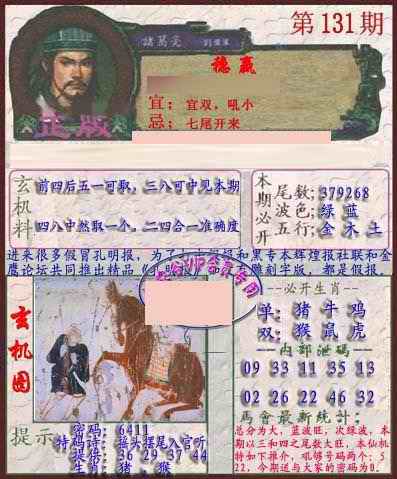 第131期
諸葛亮
稳赢
宜：宜双，吼小
忌：七尾开来
正版
玄机料
前四后五一可取，三八可中见本期
四八中然取一个。二四合一准确度
本期必开
尾数：379268
波色：绿 蓝
五行：金 木 土
进来很多假冒孔明报，为了
和黑专本辉煌报社联和金
鹰论坛共同推出精品
雕刻字版，都是假报。
玄机图
--必开生肖--
单：猪 牛 鸡
双：猴 鼠 虎
--内部泄码--
09 33 11 35 13
02 26 22 46 32
06 21 12 45 64
马會最新統计：
总分为大，蓝波旺，次绿波，本期以三和四之尾数大旺，本仙机特如下推介，吼够号码两个：522，今期送与大家的密码为0．
提示
密码：6411
特码诗：摇头摆尾入官听
提倍：36 29 37 44
生肖：猪．猴